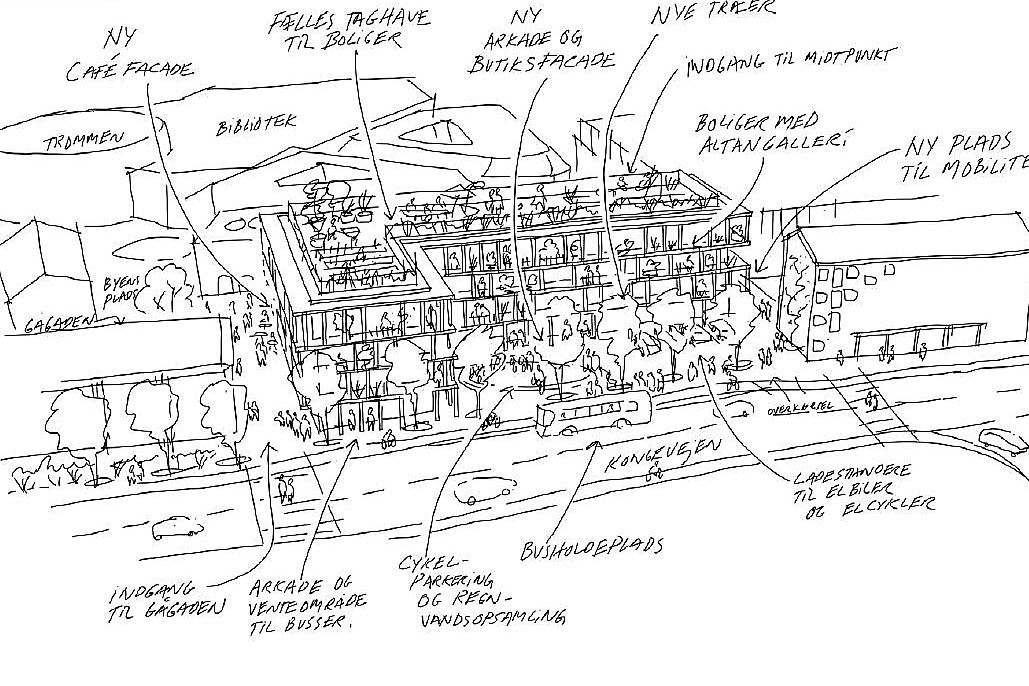 NY
CAFÉFACADE
FÆLLES TAGHAVE
TIL BOLIGER
NY
ARKADE OG
BUTIKSFACADE
NYE TRÆER
INDGANG TIL MIDTPUNKT
BOLIGER MED
ALTANGALLERI
NY PLADS
TIL MOBILITE
TROMMEN
BIBLIOTEK
BYENS
PLADS
GÅGADEN
OVERKØRSEL
KONGEVEJEN
LADESTANDERE
TIL ELBILER
OG ELCYKLER
INDGANG
TIL GÅGADEN
ARKADE OG
VENTEOMRÅDE
TIL BUSSER.
CYKEL-
PARKERING
OG REGN-
VANDSOPSAMLING
BUSHOLDEPLADS